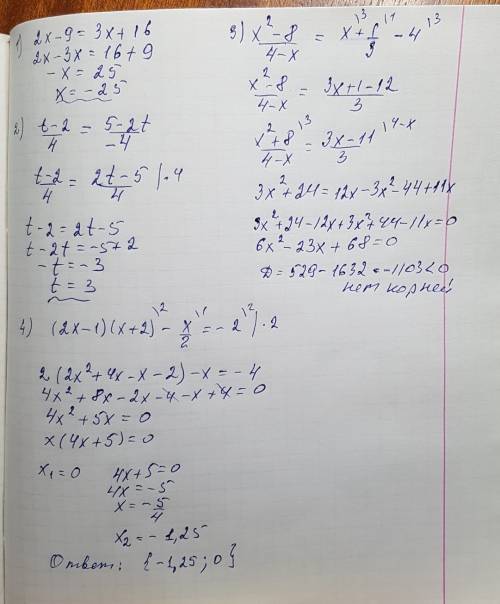 1) 2x-9=3x+16
2x-3x=16+9
-x=25
x=-25
2) t-2/4 = 5-2t/-4
t-2/4 = 2t-5/4 |·4
t-2=2t-5
t-2t=-5+2
-t=-3
t=3
3) x²-8/4-x = x\3 + 1/3\1 - 4\3
x²-8/4-x = 3x+1-12/3
x²+8/4-x\3 = 3x-11/3\4-x
3x²+24=12x-3x²-44+11x
3x²+24-12x+3x²+44-11x=0
6x²-23x+68=0
D=529-1632=-1103<0
нет корней
4) (2x-1)(x+2)\2 - x/2\1 = -2\2 |·2
2(2x²+4x-x-2)-x=-4
4x²+8x-2x-4-x+4=0
4x²+5x=0
x(4x+5)=0
x₁=0 4x+5=0
4x=-5
x=-5/4
x₂=-1,25
Ответ: {-1,25; 0}